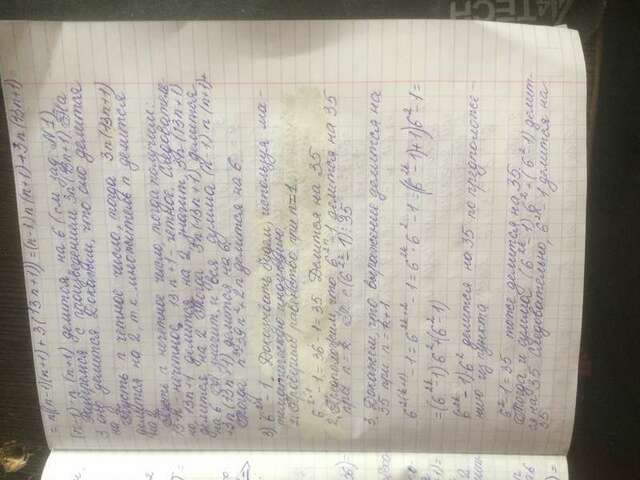 = n((n-1)(n+1)+3(13n+1))=(n-1)n(n+1)+3n(13n+1)
(n-1)·n(n+1) делится на 6 (см. зад. N 1)
Разберемся с произведением 3n(13n+1) На
3 оно делится. Докажем, что оно делится
на 2.
Пусть n четное число, тогда 3n(13n+1)
делится на 2, т.к. множитель n делится
на 2
Пусть n нечетное число, тогда получим:
13n - нечетное, 13n+1 - четное. Следователь-
но, 13n+1 делится на 2, значит, 3n(13n+1)
делится на 2. Тогда 3n(13n+1) делится
на 6. А значит, и вся сумма (n-1)n(n+1)+
+3n(13n+1) делится на 6.
Тогда n³+39n²+2n делится на 6
3) 6²ⁿ-1. Доказывать будем, используя ма-
тематическую индукцию
1. Проверим равенство при n=1.
6²·¹-1=36-1=35. Делится на 35
2. Предположим, что 6²ⁿ-1 делится на 35
при n=k (6²ᵏ-1)⋮35
3. Докажем, что выражение делится на
35 при n=k+1
6²⁽ᵏ⁺¹⁾-1=6²ᵏ⁺²-1=6²ᵏ·6²-1=((6²ᵏ-1)+1)6²-1=
=(6²ᵏ-1)6²+(6²-1)
(6²ᵏ-1)6² делится на 35 по предположе-
нию из пункта
6²-1=35 тоже делится на 35
Тогда и сумма (6²ᵏ-1)·6²+(6²-1) делит-
ся на 35. Следовательно, 6²ⁿ-1 делится на
35
MATECH